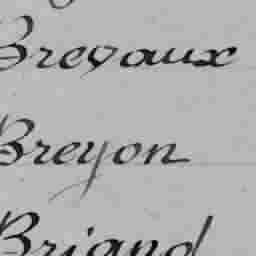 Brevaux
Breyon
Briand